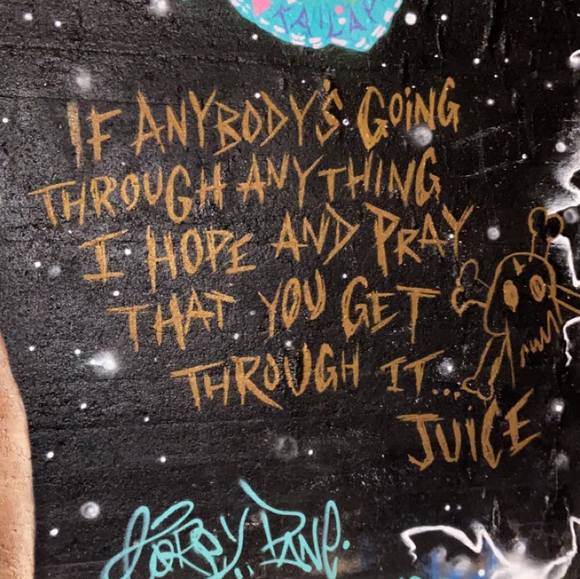 IF ANYBODY'S GOiNG
THROUGH ANYTHING
I HOPE AND PRAY
THAT YOU GET
THROUGH IT...
JUICE